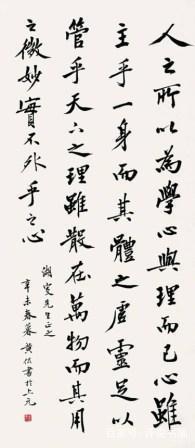 人之所以為學心與理而已心雖
主乎一身而其體之虛靈足以
管乎天下之理雖散在萬物而其用
之微妙實不外乎之心
先生正之
辛未春暮黃書於上元